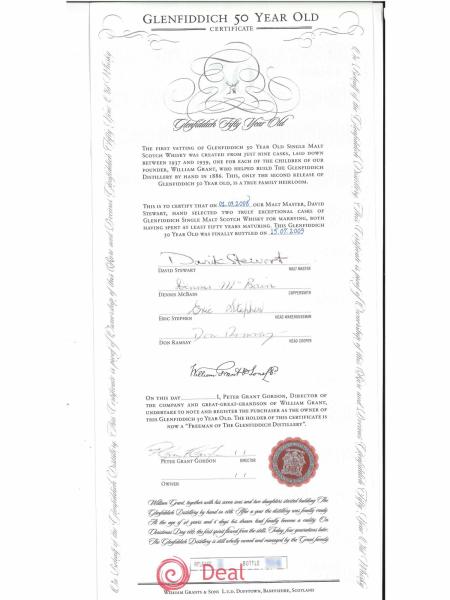 GLENFIDDICH 50 YEAR OLD
CERTIFICATE
Glenfiddich Fifty Year Old
THE FIRST VATTING OF GLENFIDDICH 50 YEAR OLD SINGLE MALT
SCOTCH WHISKY WAS CREATED FROM JUST NINE CASKS, LAID DOWN
BETWEEN 1937 AND 1939, ONE FOR EACH OF THE CHILDREN OF OUR
FOUNDER, WILLIAM GRANT, WHO HELPED BUILD THE GLENFIDDICH
DISTILLERY BY HAND IN 1886. THIS, ONLY THE SECOND RELEASE OF
GLENFIDDICH 50 YEAR OLD, IS A TRUE FAMILY HEIRLOOM.
THIS IS TO CERTIFY THAT ON 01.09.2008 OUR MALT MASTER, DAVID
STEWART, HAND SELECTED TWO TRULY EXCEPTIONAL CASKS OF
GLENFIDDICH SINGLE MALT SCOTCH WHISKY FOR MARRYING, BOTH
HAVING SPENT AT LEAST FIFTY YEARS MATURING. THIS GLENFIDDICH
50 YEAR OLD WAS FINALLY BOTTLED ON 15.07.2009
David Stewart
DAVID STEWART MALT MASTER
Dennis McBain
DENNIS MCBAIN COPPERSMITH
Eric Stephen
ERIC STEPHEN HEAD WAREHOUSEMAN
Don Ramsay
DON RAMSAY HEAD COOPER
William Grant & Sons Ltd.
ON THIS DAY I, PETER GRANT GORDON, DIRECTOR OF
THE COMPANY AND GREAT-GREAT-GRANDSON OF WILLIAM GRANT,
UNDERTAKE TO NOTE AND REGISTER THE PURCHASER AS THE OWNER OF
THIS GLENFIDDICH 50 YEAR OLD. THE HOLDER OF THIS CERTIFICATE IS
NOW A "FREEMAN OF THE GLENFIDDICH DISTILLERY".
PETER GRANT GORDON DIRECTOR
OWNER
William Grant, together with his seven sons and two daughters started building The
Glenfiddich Distillery by hand in 1886. After a year the distillery was finally ready.
At the age of 48 years and 6 days his dream had finally become a reality. On
Christmas Day 1887 the first spirit flowed from the stills. Today, five generations later,
The Glenfiddich Distillery is still wholly owned and managed by the Grant family.
BOTTLE
Deal
WILLIAM GRANTS & SONS LTD, DUFFTOWN, BANFFSHIRE, SCOTLAND